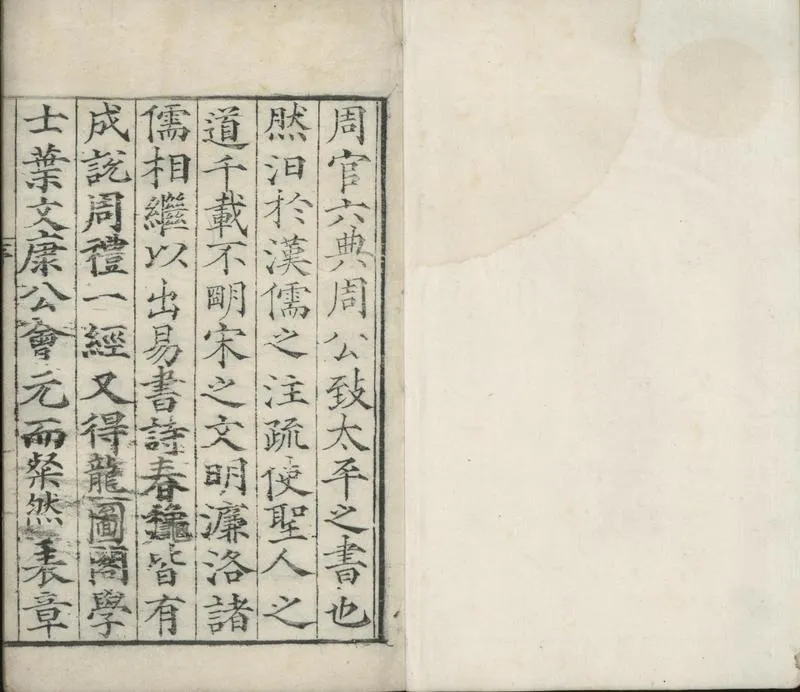 周官六典周公致太平之書也
然汩於漢儒之注疏使聖人之
道千載不明宋之文明濂洛諸
儒相繼以出易書詩春龝皆有
成說周禮一經又得龍圖閣學
士葉文康公會元而粲然表章
序